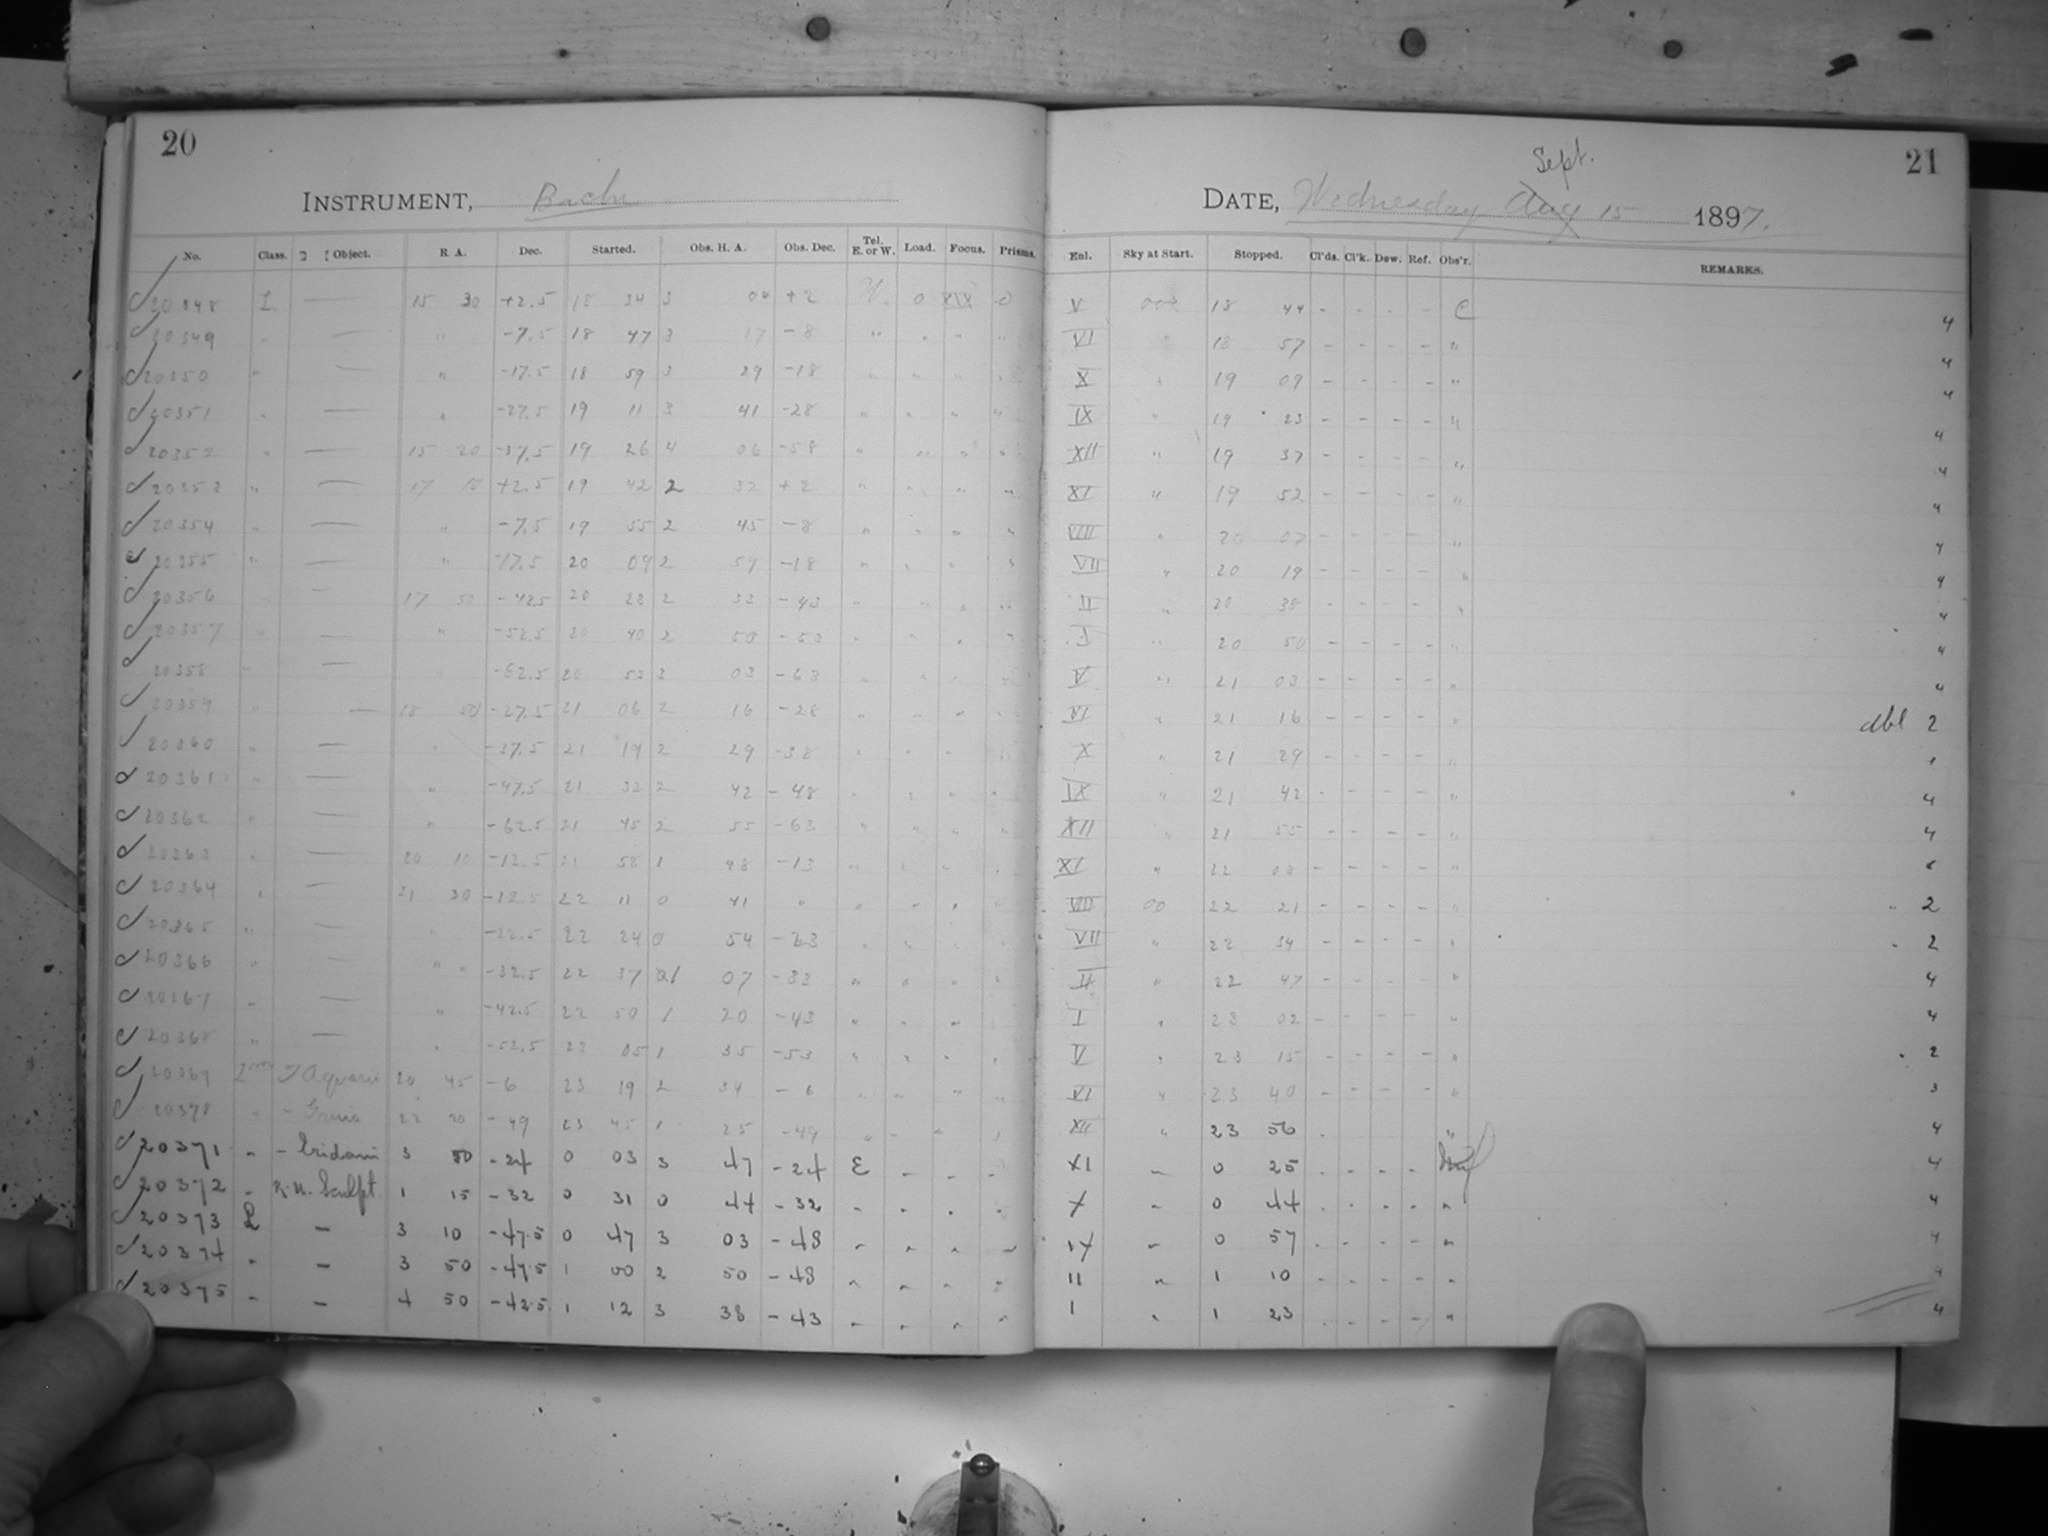 20
INSTRUMENT, Bache
No. Class. Object. R. A. Dec. Started. Obs. H. A. Obs. Dec. Tel. E. or W. Load. Focus. Prisms.
20348 L — 15 30 +2.5 18 34 3 04 +2 W. 0 XIX 0
20349 " — " -7.5 18 47 3 17 -8 " " " "
20350 " — " -17.5 18 59 3 29 -18 " " " "
20351 " — " -27.5 19 11 3 41 -28 " " " "
20352 " — 15 20 -57.5 19 26 4 06 -58 " " " "
20353 " — 17 10 +2.5 19 42 2 32 +2 " " " "
20354 " — " -7.5 19 55 2 45 -8 " " " "
20355 " — " -17.5 20 09 2 59 -18 " " " "
20356 " — 17 50 -42.5 20 28 2 38 -43 " " " "
20357 " — " -52.5 20 40 2 50 -53 " " " "
20358 " — " -62.5 20 53 3 03 -63 " " " "
20359 " — 18 50 -27.5 21 06 2 16 -28 " " " "
20360 " — " -37.5 21 19 2 29 -38 " " " "
20361 " — " -47.5 21 32 2 42 -48 " " " "
20362 " — " -62.5 21 45 2 55 -63 " " " "
20363 " — 20 10 -12.5 21 58 1 48 -13 " " " "
20364 " — 21 30 -12.5 22 11 0 41 " " " " "
20365 " — " -22.5 22 24 0 54 -23 " " " "
20366 " — " " -32.5 22 37 1 07 -33 " " " "
20367 " — " -42.5 22 50 1 20 -43 " " " "
20368 " — " -52.5 23 05 1 35 -53 " " " "
20369 T Aquarii 20 45 -6 23 19 2 34 -6 " " " "
20370 " - Gruis 22 20 -49 23 45 1 25 -49 " " " "
20371 " - Eridani 3 50 -24 0 03 3 47 -24 E " " "
20372 " R. U. Sculpt. 1 15 -32 0 31 0 44 -32 " " " "
20373 L — 3 10 -47.5 0 47 3 03 -48 " " " "
20374 " — 3 50 -47.5 1 00 2 50 -48 " " " "
20375 " — 4 50 -42.5 1 12 3 38 -43 " " " "
21
Sept.
DATE, Wednesday Aug 15 1897.
Enl. Sky at Start. Stopped. Cl'ds. Cl'k. Dew. Ref. Obs'r. REMARKS.
V 18 44 - - - - C 4
VI " 18 57 - - - - " 4
X " 19 09 - - - - " 4
IX " 19 23 - - - - " 4
XII " 19 37 - - - - " 4
XI " 19 52 - - - - " 4
VIII " 20 07 - - - - " 4
VII " 20 19 - - - - " 4
II " 20 38 - - - - " 4
I " 20 50 - - - - " 4
V " 21 03 - - - - " 4
VI " 21 16 - - - - " dbl 2
X " 21 29 - - - - "
IX " 21 42 - - - - " 4
XII " 21 55 - - - - " 4
XI " 22 08 - - - - "
VIII 00 22 21 - - - - " 2
VII " 22 34 - - - - " 2
II " 22 47 - - - - " 4
I " 23 02 - - - - " 4
V " 23 15 - - - - " 2
VI " 23 40 - - - - " 3
XII " 23 56 " 4
XI " 0 25 - - - - 4
X " 0 44 - - - - " 4
IX " 0 57 - - - - " 4
II " 1 10 - - - - " 4
I " 1 23 - - - - " 4